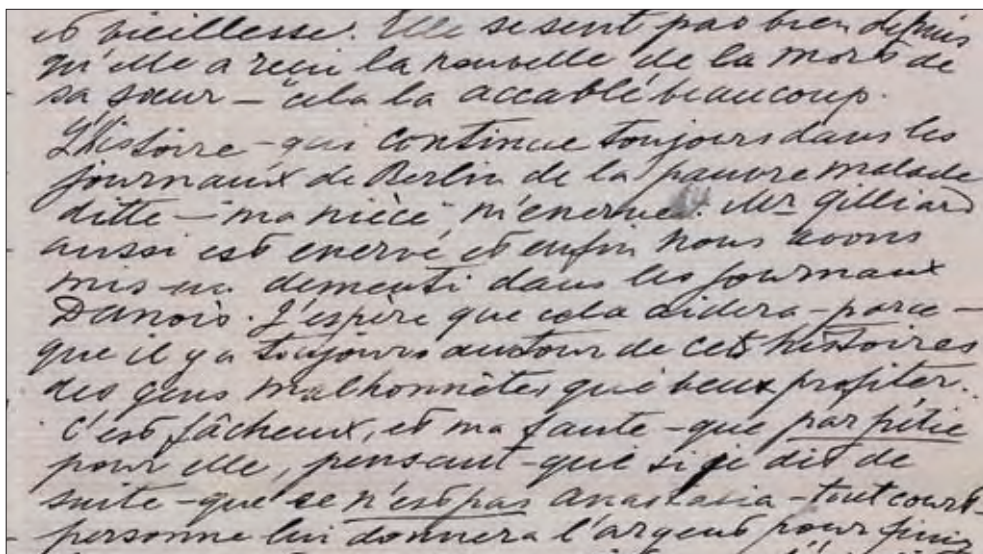 et vieillesse. Elle se sent pas bien depuis
qu'elle a reçu la nouvelle de la mort de
sa sœur – cela la accablé beaucoup.
L'histoire – qui continue toujours dans les
journaux de Berlin de la pauvre malade
ditte – "ma nièce" m'enerve. Mr Gilliard
aussi est enervé et enfin nous avons
mis un dementi dans les journaux
Danois. J'espère que cela aidera – parce –
que il y a toujours autour de cets histoires
des gens malhonnêtes qui veux profiter.
C'est fâcheux, et ma faute – que par pitié
pour elle, pensant – que si je dis de
suite – que se n'est pas Anastasia – tout court –
personne lui donnera l'argent pour finir